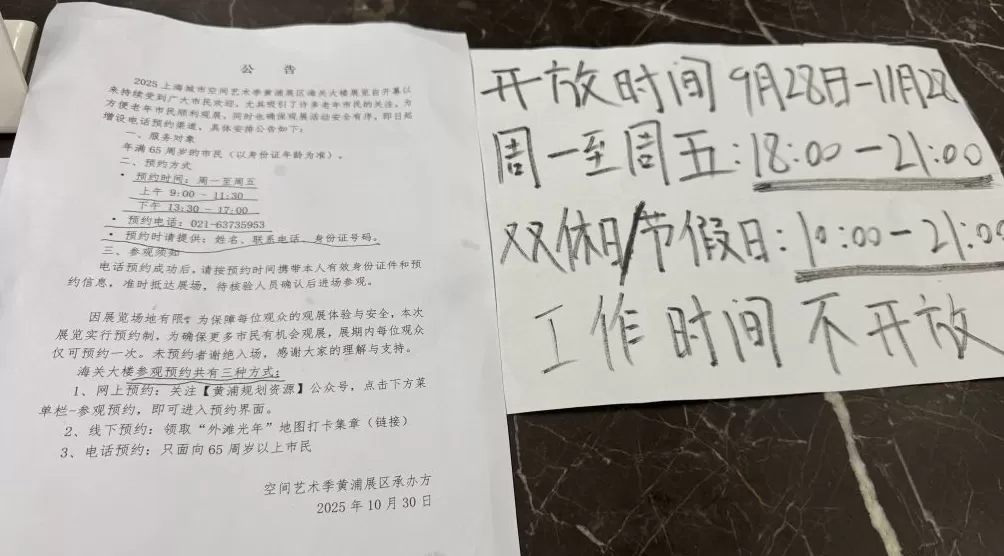 公 告
2025 上海城市空间艺术季黄浦展区海关大楼展览自开幕以
来持续受到广大市民欢迎，尤其吸引了许多老年市民的关注。为
方便老年市民顺利观展，同时也确保观展活动安全有序，即日起
增设电话预约渠道，具体安排公告如下：
一、服务对象
年满 65 周岁的市民（以身份证年龄为准）。
二、预约方式
• 预约时间：周一至周五
上午 9:00 - 11:30
下午 13:30 - 17:00
• 预约电话：021-63735953
• 预约时请提供：姓名、联系电话、身份证号码。
三、参观须知
电话预约成功后，请按预约时间携带本人有效身份证件和预
约信息，准时抵达展场，待核验人员确认后进场参观。
因展览场地有限，为保障每位观众的观展体验与安全，本次
展览实行预约制，为确保更多市民有机会观展，展期内每位观众
仅可预约一次。未预约者谢绝入场，感谢大家的理解与支持。
海关大楼参观预约共有三种方式：
1、网上预约：关注【黄浦规划资源】公众号，点击下方菜
单栏-参观预约，即可进入预约界面。
2、线下预约：领取“外滩光年”地图打卡集章（链接）
3、电话预约：只面向 65 周岁以上市民
空间艺术季黄浦展区承办方
2025 年 10 月 30 日
开放时间 9月28日-11月28
周一至周五:18:00-21:00
双休日/节假日:10:00-21:00
工作时间不开放